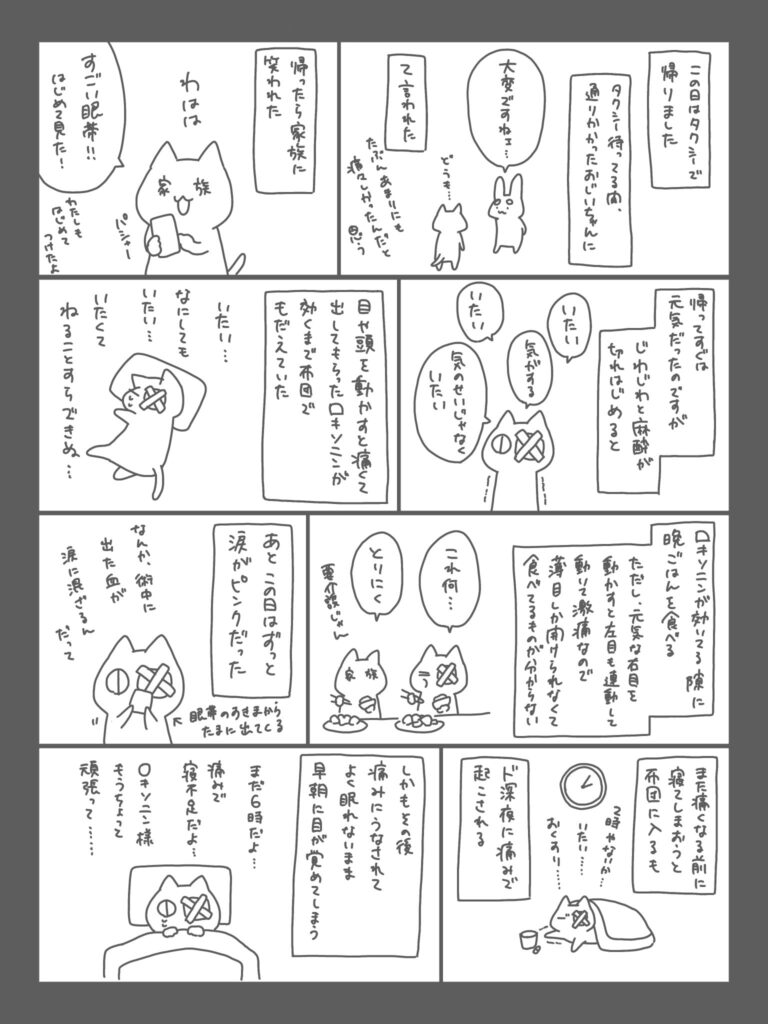 この日はタクシーで
帰りました
タクシー待ってる間、
通りかかったおじいちゃんに
大変ですねェ…
て言われた
どうも…
たぶんあまりにも
痛々しかったんだと
思う
帰ったら家族に
笑われた
わはは
家族
パシャー
すごい眼帯!!
はじめて見た!
わたしも
はじめて
つけたよ
帰ってすぐは
元気だったのですが
じわじわと麻酔が
切れはじめると
いたい
いたい
気がする
気のせいじゃなく
いたい
目や頭を動かすと痛くて
出してもらったロキソニンが
効くまで布団で
もだえていた
いたい…
なにしても
いたい…
いたくて
ねることすらできぬ…
ロキソニンが効いてる隙に
晩ごはんを食べる
ただし、元気な右目を
動かすと左目も連動して
動いて激痛なので
薄目しか開けられなくて
食べてるものが分からない
これ何…
とりにく
要介護じゃん
家族
あとこの日はずっと
涙がピンクだった
なんか、術中に
出た血が
涙に混ざるん
だって
眼帯のすきまから
たまに出てくる
また痛くなる前に
寝てしまおうと
布団に入るも
ド深夜に痛みで
起こされる
2時やないか…
いたい……
おくすり……
しかもその後
痛みにうなされて
よく眠れないまま
早朝に目が覚めてしまう
まだ6時だよ…
痛みで
寝不足だよ…
ロキソニン様
もうちょって
頑張って……